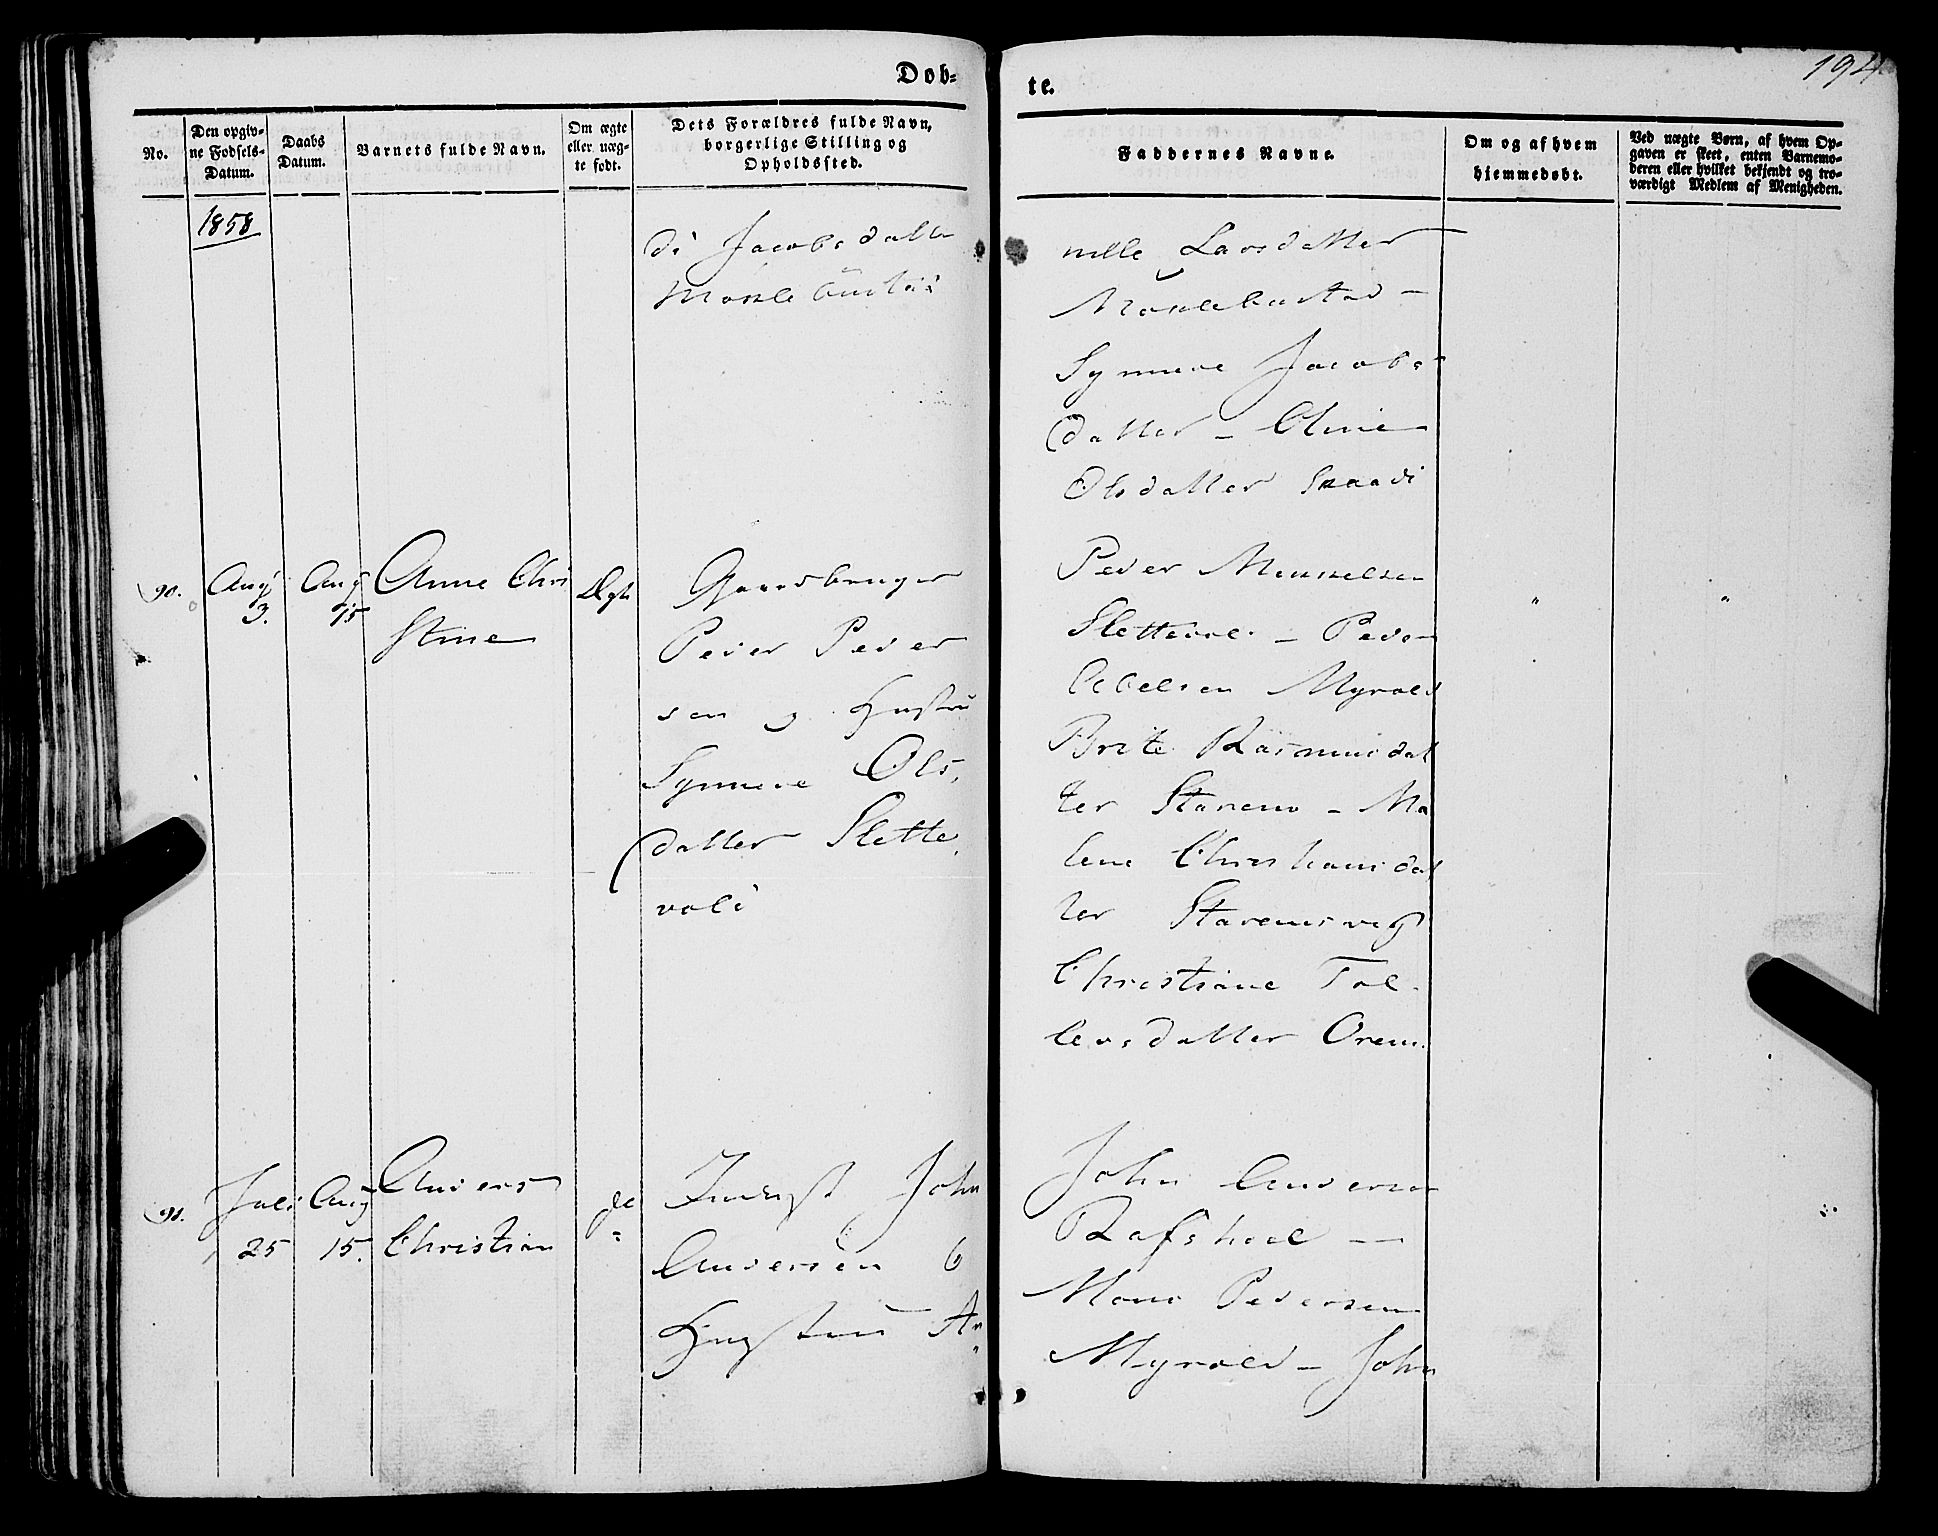 Døb=
te.
194
No.
Den opgiv-
ne Fødsels-
Datum.
Daabs
Datum.
Barnets fulde Navn.
Om ægte
eller uæg-
te født.
Dets Forældres fulde Navn,
borgerlige Stilling og
Opholdssted.
Faddernes Navne.
Om og af hvem
hjemmedøbt.
Ved uægte Børn, af hvem Op-
gaven er skeet, enten Barnemo-
deren eller hvilket bekjendt og tro-
værdigt Medlem af Menigheden.
1858
Jacobsdatter
nille Larsdatter
Moldebustad -
Synneve Jacobs
datter - Oline
Olsdatter
90.
Aug
3.
Aug
15
Anne Chri
stine
Ægte
Gaardbruger
Peder Peder
sen og Hustru
Synneve Ols,
datter Slette,
vold
Peder Mikkelsen
Slettevold - Peder
Myrold
Brite Rasmusdat
ter Starem - Ma
lene Christiansdat
ter Staremsvig
Christiane Tol-
levsdatter Orem.
"
"
91.
Juli
25
Aug
15.
Anders
Christian
Inderst John
Andersen &
Hustru An
John Andersen
Rafshoel -
Mons Pedersen
Myrold - John